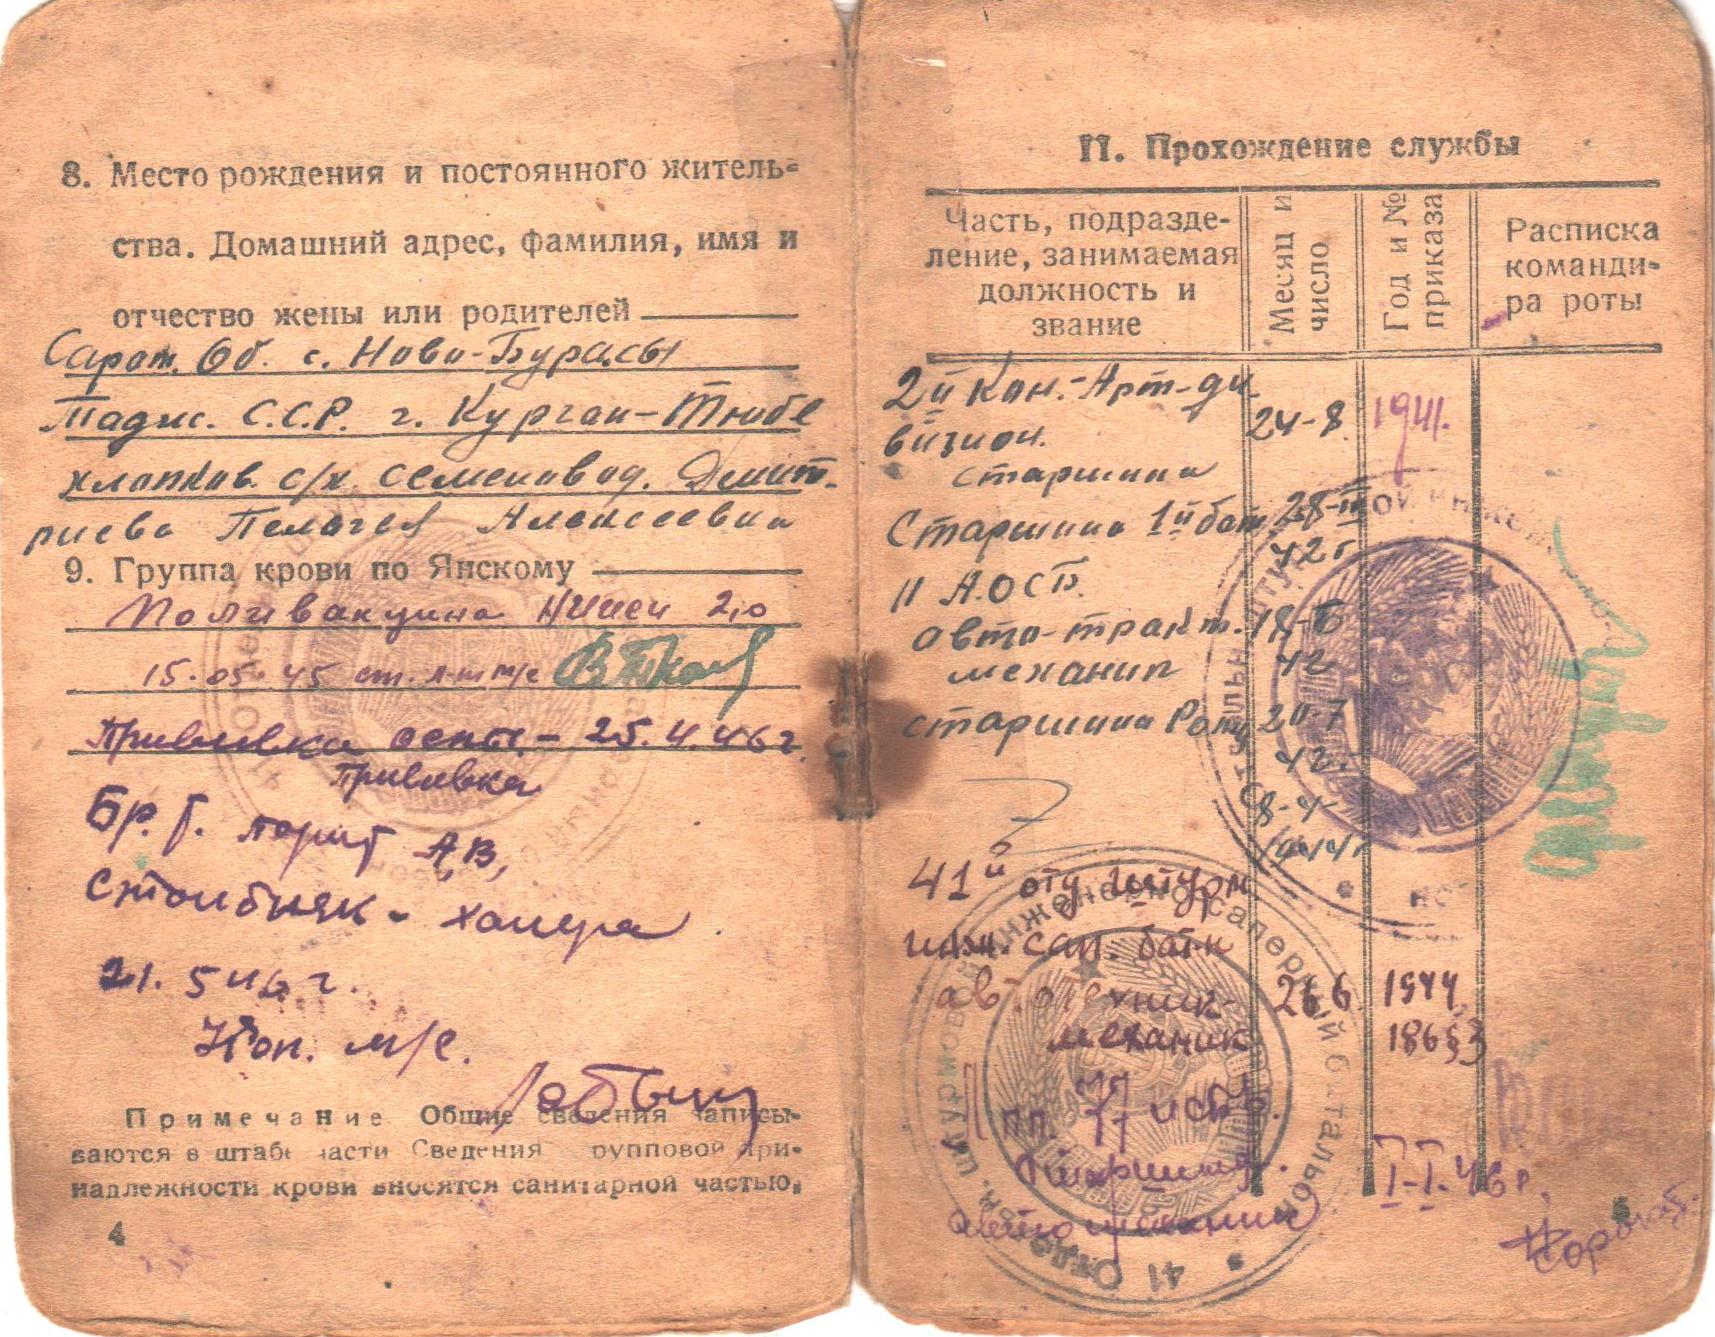 8. Место рождения и постоянного житель-
ства. Домашний адрес, фамилия, имя и
отчество жены или родителей
Сарат. Об. с. Ново-Бурасы
Тадж. С.С.Р. г. Курган-Тюбе
хлопков. с/х. семеновод. Дмит-
риева Пелагея Алексеевна
9. Группа крови по Янскому
Поливакцина НИИСИ 2,0
15.05.45 ст. л-т м/с
Прививка оспы - 25.4.46 г.
Прививка
Бр. т. парат АВ,
Столбняк - холера
21. 5 46 г.
м/с.
Примечание Общие сведения записы-
ваются в штабе части Сведения групповой при-
надлежности крови вносятся санитарной частью.
4
II. Прохождение службы
Часть, подразде-
ление, занимаемая
должность и
звание
Месяц и
число
Год и №
приказа
Расписка
команди-
ра роты
2й Кон.-Арт-ди
визион. 24-8. 1941.
старшина
Старшина 1й бат 28-III
42 г
11 А.О С Б.
авто-тракт. 18-6
механик 42
старшина Роты 20-7
42 г.
8-4-
1944 г
41й отд штурм
инж. сап. бат-н
автотехник- 26.6 1944
механик 186 § 3
пп. 77 ИСБ.
Старшина
автомеханик I-I-46 г.
41 Отдельн. штурмовой инженерно-саперный батальон
5